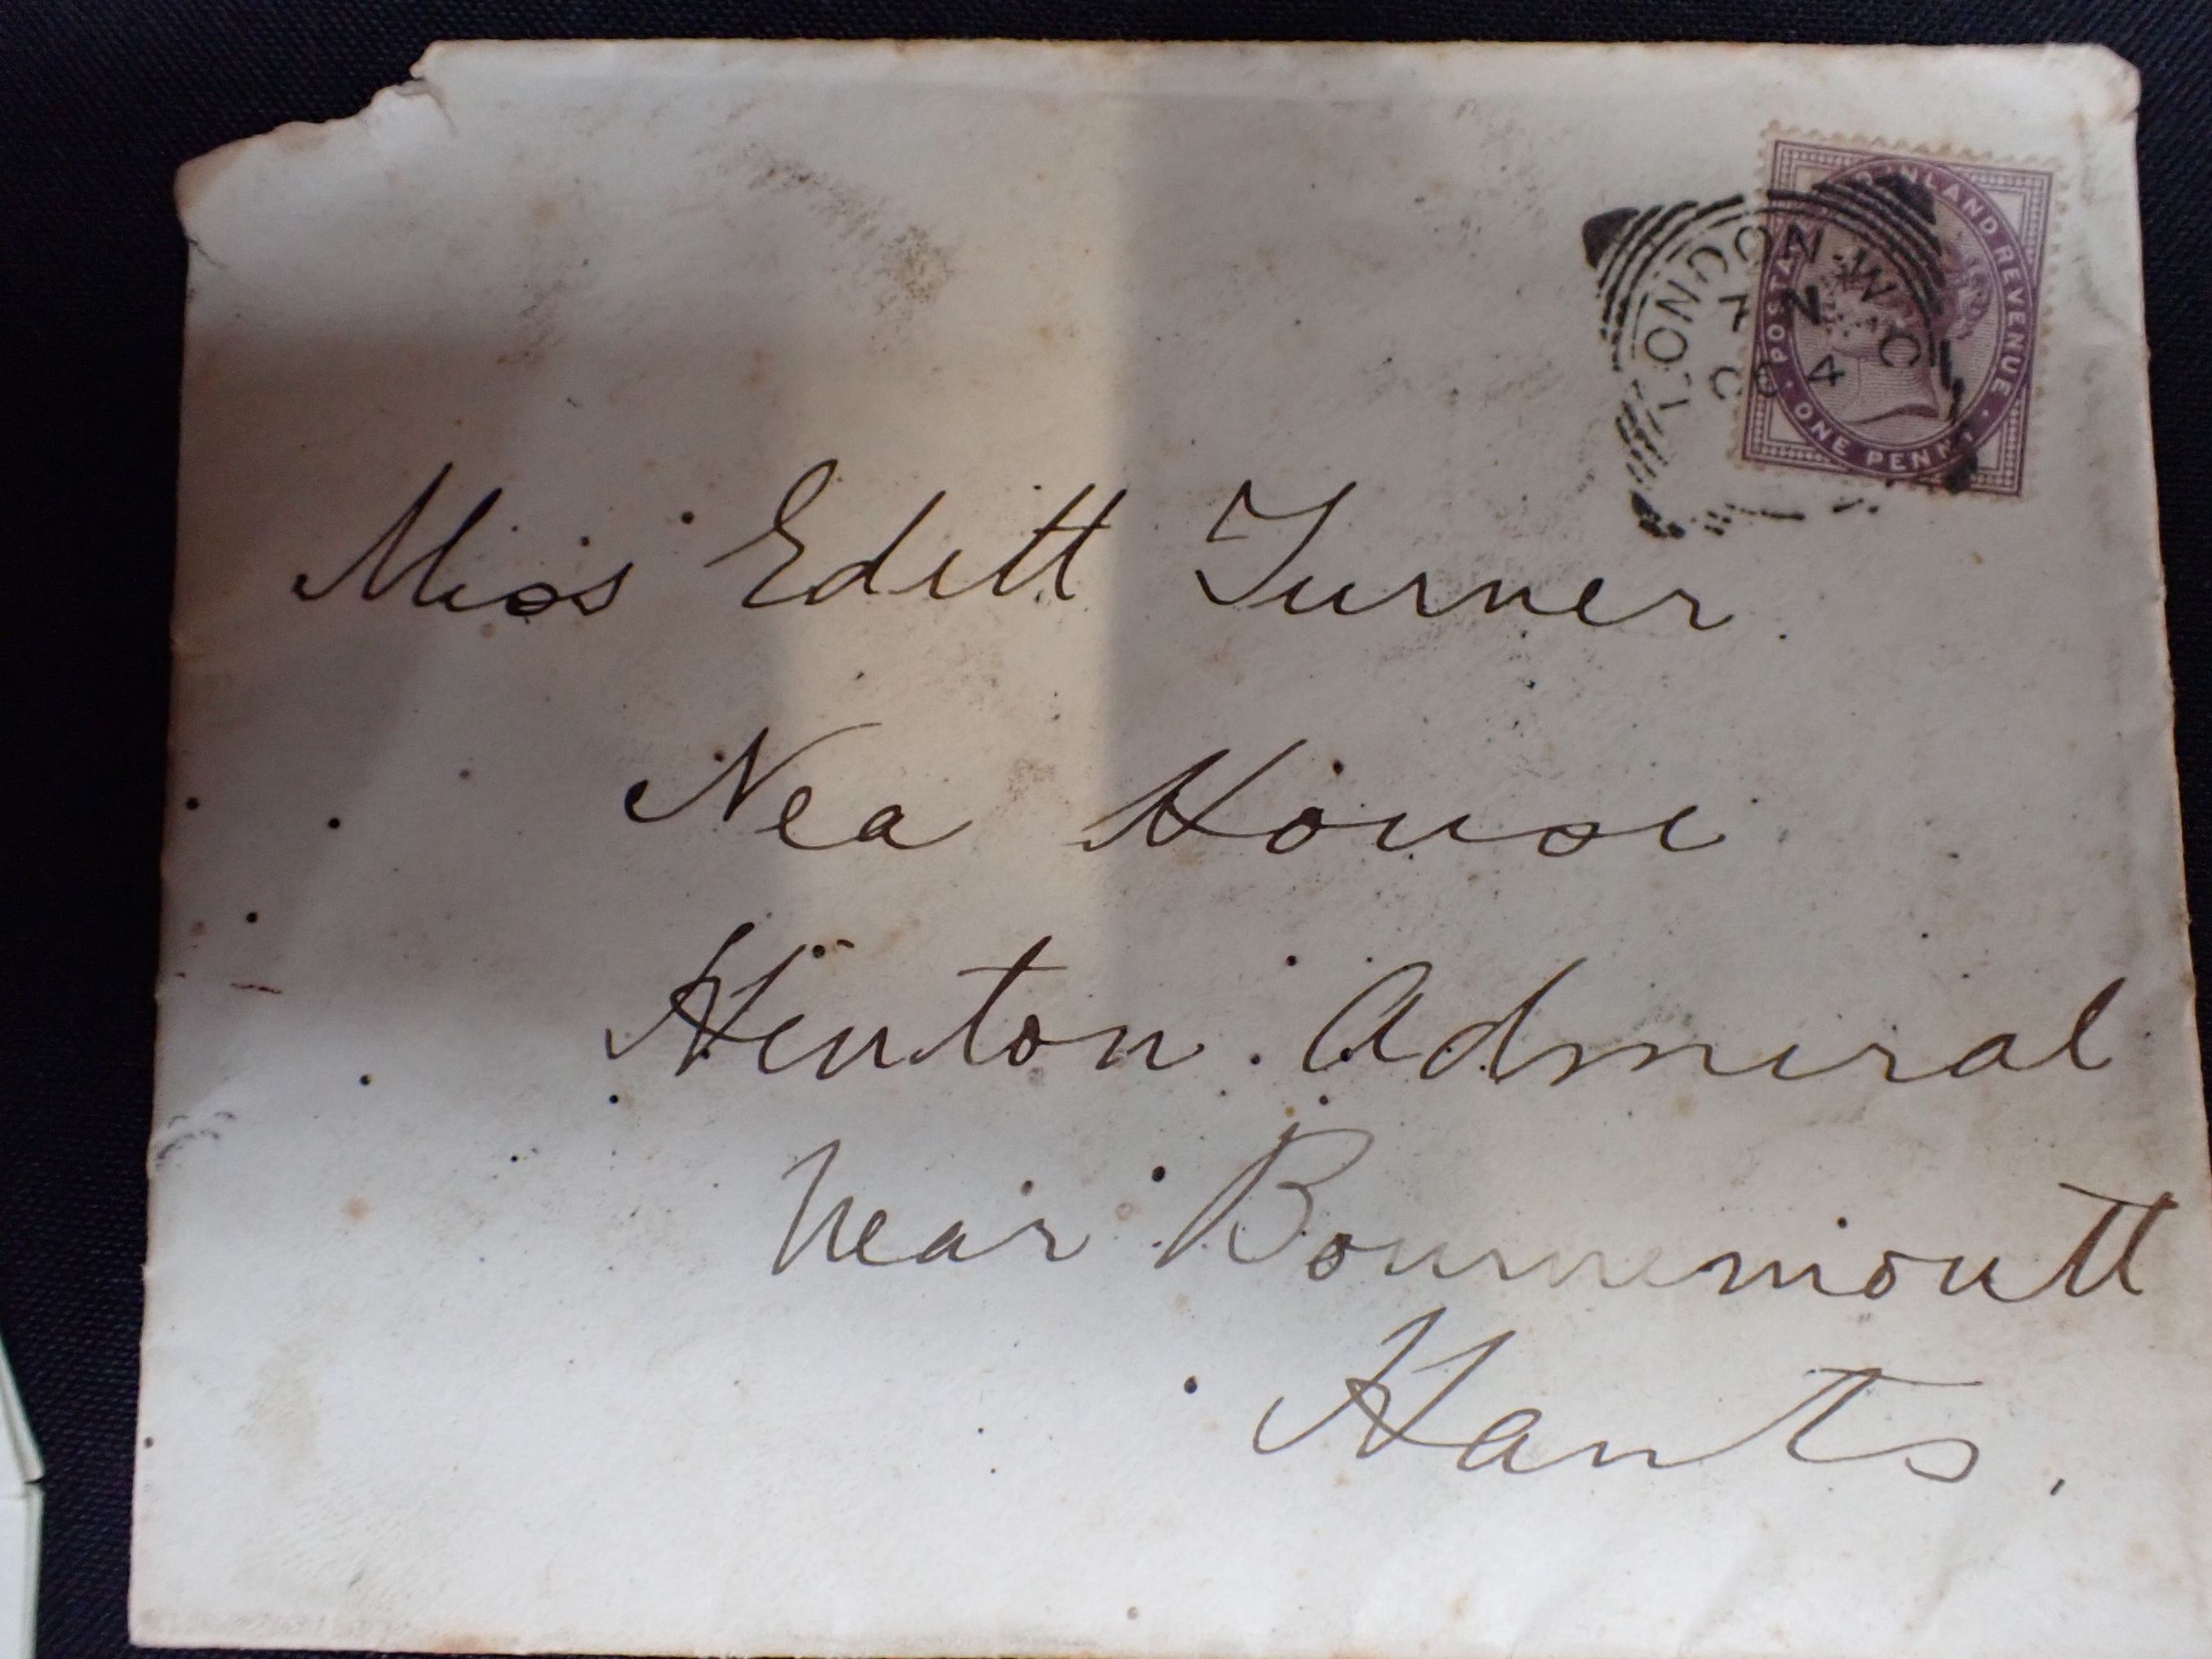 POSTAGE AND INLAND REVENUE
ONE PENNY
LONDON.W.C
4
Miss Edith Turner.
Nea House
Hinton. Admiral
Near Bournemouth
Hants.